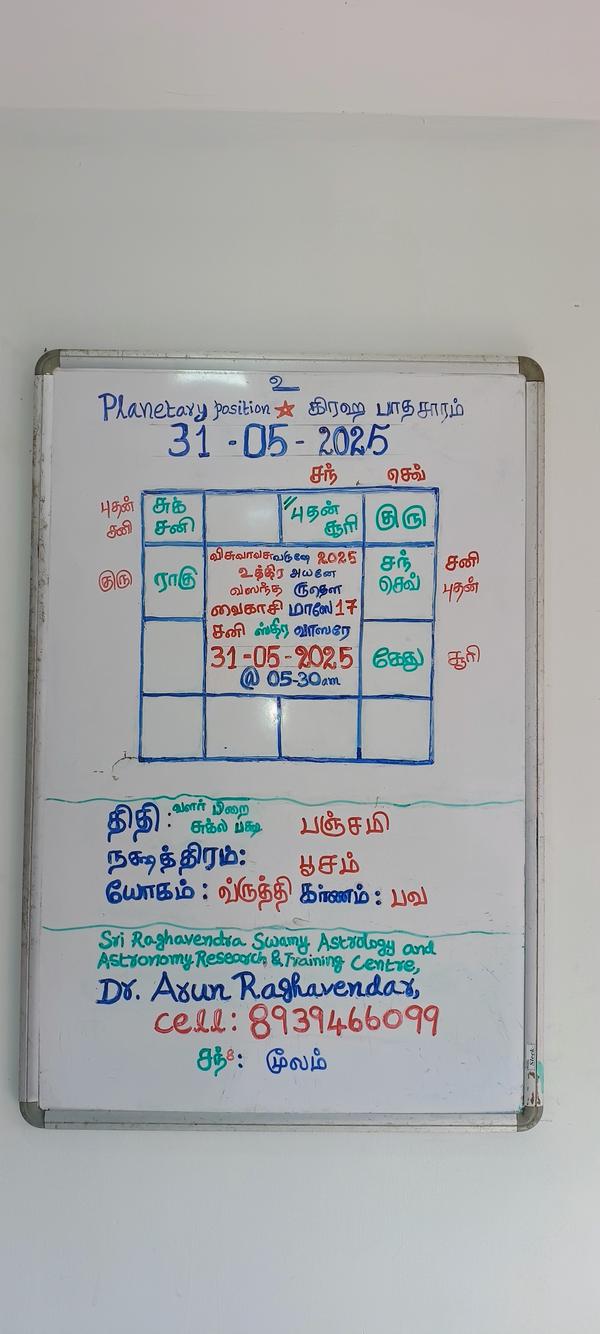 உ
Planetary position ☆ கிரஹ பாதசாரம்
31-05-2025
சந் செவ்
புதன் சுக் புதன் குரு
சனி சனி சூரி
விசுவாவசுவருஷே 2025
உத்திர அயனே
வஸந்த ருதௌ
வைகாசி மாஸே 17
சனி ஸ்திர வாஸரே
31-05-2025
@ 05-30am
குரு ராகு சந் சனி
செவ் புதன்
கேது சூரி
திதி: வளர் பிறை பஞ்சமி
சுக்ல பக்ஷ
நக்ஷத்திரம்: பூசம்
யோகம்: வ்ருத்தி கரணம்: பவ
Sri Raghavendra Swamy Astrology and
Astronomy Research & Training Centre,
Dr. Arun Raghavendar,
cell: 8939466099
சந் 8: மூலம்